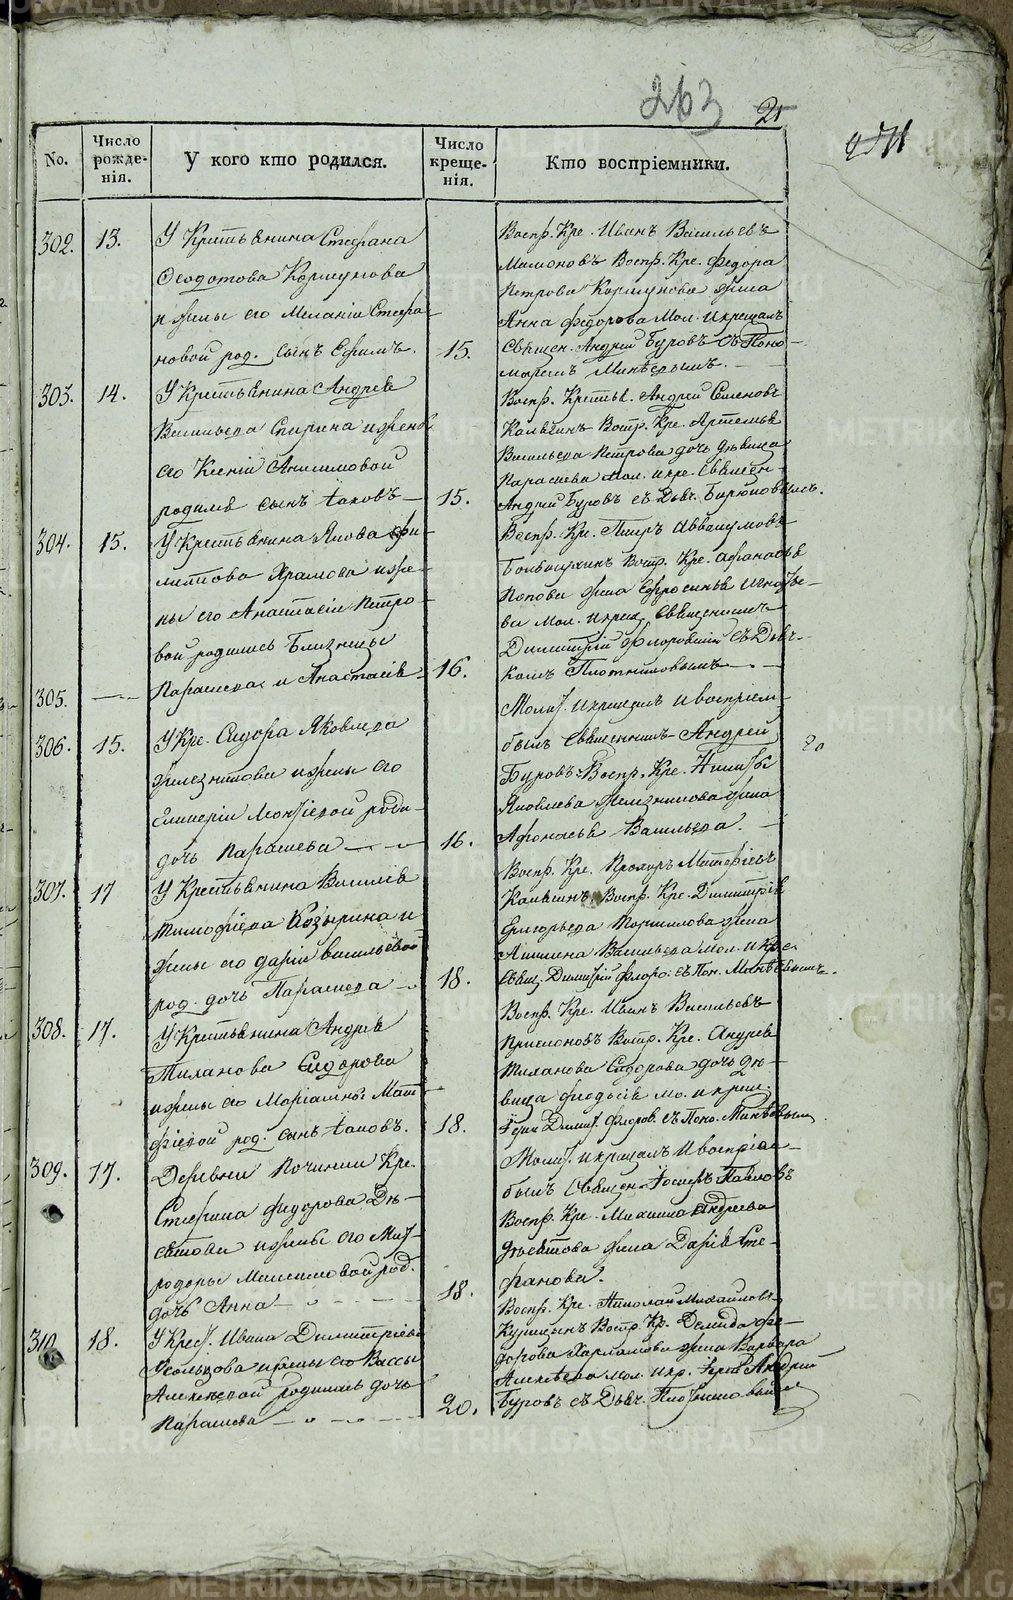 263
21
No.
Число рожде-нія.
У кого кто родился.
Число креще-нія.
Кто воспріемники.
302. 13.
У Крестьянина Стефана
Феодотова Коршунова
и жены его Меланіи Стефа-
новой род. сынъ Ефимъ.
15.
Воспр. Кре. Иванъ Васильевъ
Мамоновъ Воспр. Кре. Федора
Петрова Коршунова жена
Анна Федорова Мол. и крещалъ
Священ. Андрей Буровъ съ Поно-
маремъ
303. 14.
У Крестьянина Андрея
Васильева Спирина и жены
его Ксеніи Анисимовой
родился сынъ Іаковъ
15.
Воспр. Крестья. Андрей Семеновъ
Калягинъ Воспр. Кре. Артемья
Васильева Петрова дочь девица
Параскева Мол. и кре. Священ.
Андрей Буровъ съ Дьяч.
304. 15.
У Крестьянина Якова Фи-
липпова Храмова и же-
ны его Анастасіи Петро-
вой родились близнецы
305.
Параскева и Анастасія
16.
Воспр. Кр. Петръ Аввакумовъ
Воспр. Кре. Афанасья
Попова жена Ефросинья Игнатье-
ва Мол. и крещ. Священникъ
Димитрій Флоровскій съ Дьяч-
комъ Плотниковымъ
306. 15.
У Кре. Сидора Яковлева
Железникова и жены его
Гликеріи род.
дочь Параскева
16.
Молит. и крещалъ и воспріем.
былъ Священникъ Андрей
Буровъ. Воспр. Кре. Никиты
Яковлева Железникова жена
Афонасья Васильева.
20
307. 17
У Крестьянина Василія
Тимофеева Козырина и
жены его Даріи Васильевой
род. дочь Параскева
18.
Воспр. Кре. Прохоръ
Калягинъ Воспр. Кре. Димитрія
Григорьева жена
Васильева мол. и кре.
Свящ. Димитрій Флоро. съ Пон.
308. 17.
У Крестьянина Андрея
Тиханова Сидорова
и жены его Маріамны Мат-
фіевой род. сынъ Іаковъ.
18.
Воспр. Кре. Иванъ Васильевъ
Воспр. Кре. Андрея
Тиханова Сидорова дочь де-
вица Феодосія мо. и крещ.
Іерей Димит. Флоров. съ Поно.
309. 17.
Деревни Починки Кре.
Стефана Федорова Де-
вятова и жены его Мит-
родоры Максимовой род.
дочь Анна
18.
Молит. и крещалъ и воспріем.
былъ Священ. Іосифъ Павловъ
Воспр. Кре. Михаила Андреева
Девятова жена Дарія Сте-
фанова.
310. 18.
У Крест. Ивана Димитріева
Усольцова и жены его Вассы
Алексеевой родилась дочь
Параскева
20.
Воспр. Кре. Николай Михайловъ
Воспр. Кр. Демида Фе-
дорова Харламова жена Варвара
Алексеева мол. и кр. Іерей Андрей
Буровъ съ Дьяч. Плотниковымъ
METRIKI.GASO-URAL.RU